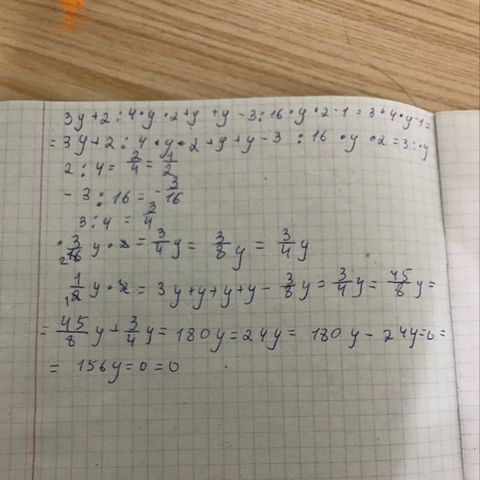 3y+2:4•y•2+y+y-3:16•y•2-1=3+4•y-1=
=3y+2:4•y•2+y+y-3:16•y•2=3:•y
2:4=2/4=1/2
-3:16=-3/16
3:4=3/4
3/16y•2=3/4y=3/8y=3/4y
1/2y•2=3y+y+y+y-3/8y=3/4y=45/8y=
=45/8y+3/4y=180y=24y=180y-24y=0=
=156y=0=0